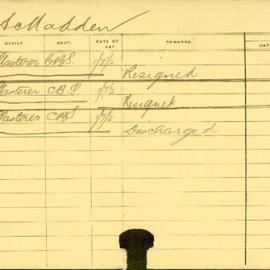 McMadden
OFFICE DEPT. RATE OF PAY REMARKS DAT
Plasterer C.B.S. 1/2/2
Resigned
Plasterer C.B.S. 1/7/2
Resigned
Plasterer C.B.S. 1/7/2
Discharged